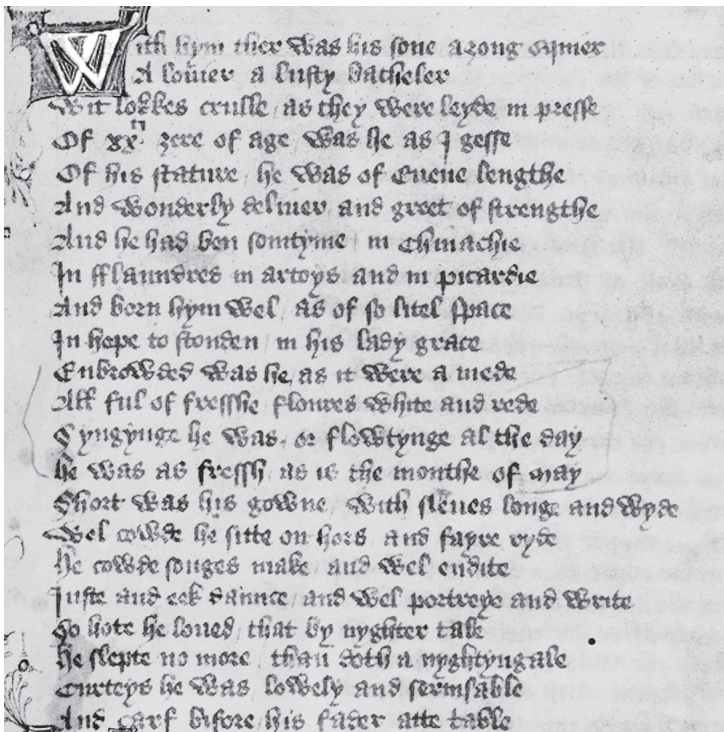 With hym ther was his sone a ȝong sqwier
A louier a lusty bacheler
Wit lokkes crulle / as they were leyde in presse
Of xxti ȝere of age was he as I gesse
Of his stature / he was of euene lengthe
And wonderly deliuer and greet of strengthe
And he had ben somtyme in chiuachie
In fflaundres in artoys and in picardie
And born hym wel / as of so litel space
In hope to stonden in his lady grace
Enbrowded was he / as it were a mede
Alł ful of fresshe floures white and rede
Syngynge he was / or flowtynge al the day
he was as fressh as is the monthe of may
Short was his gowne / with sleues longe and wyde
Wel cowde he sitte on hors and fayre ryde
He cowde songes make and wel endite
Iuste and eek daunce / and wel portreye and write
So hote he loued / that by nyghter tale
He slepte no more / than doth a nyghtyngale
Curteys he was lowely and seruisable
And carf bifore his fader atte table